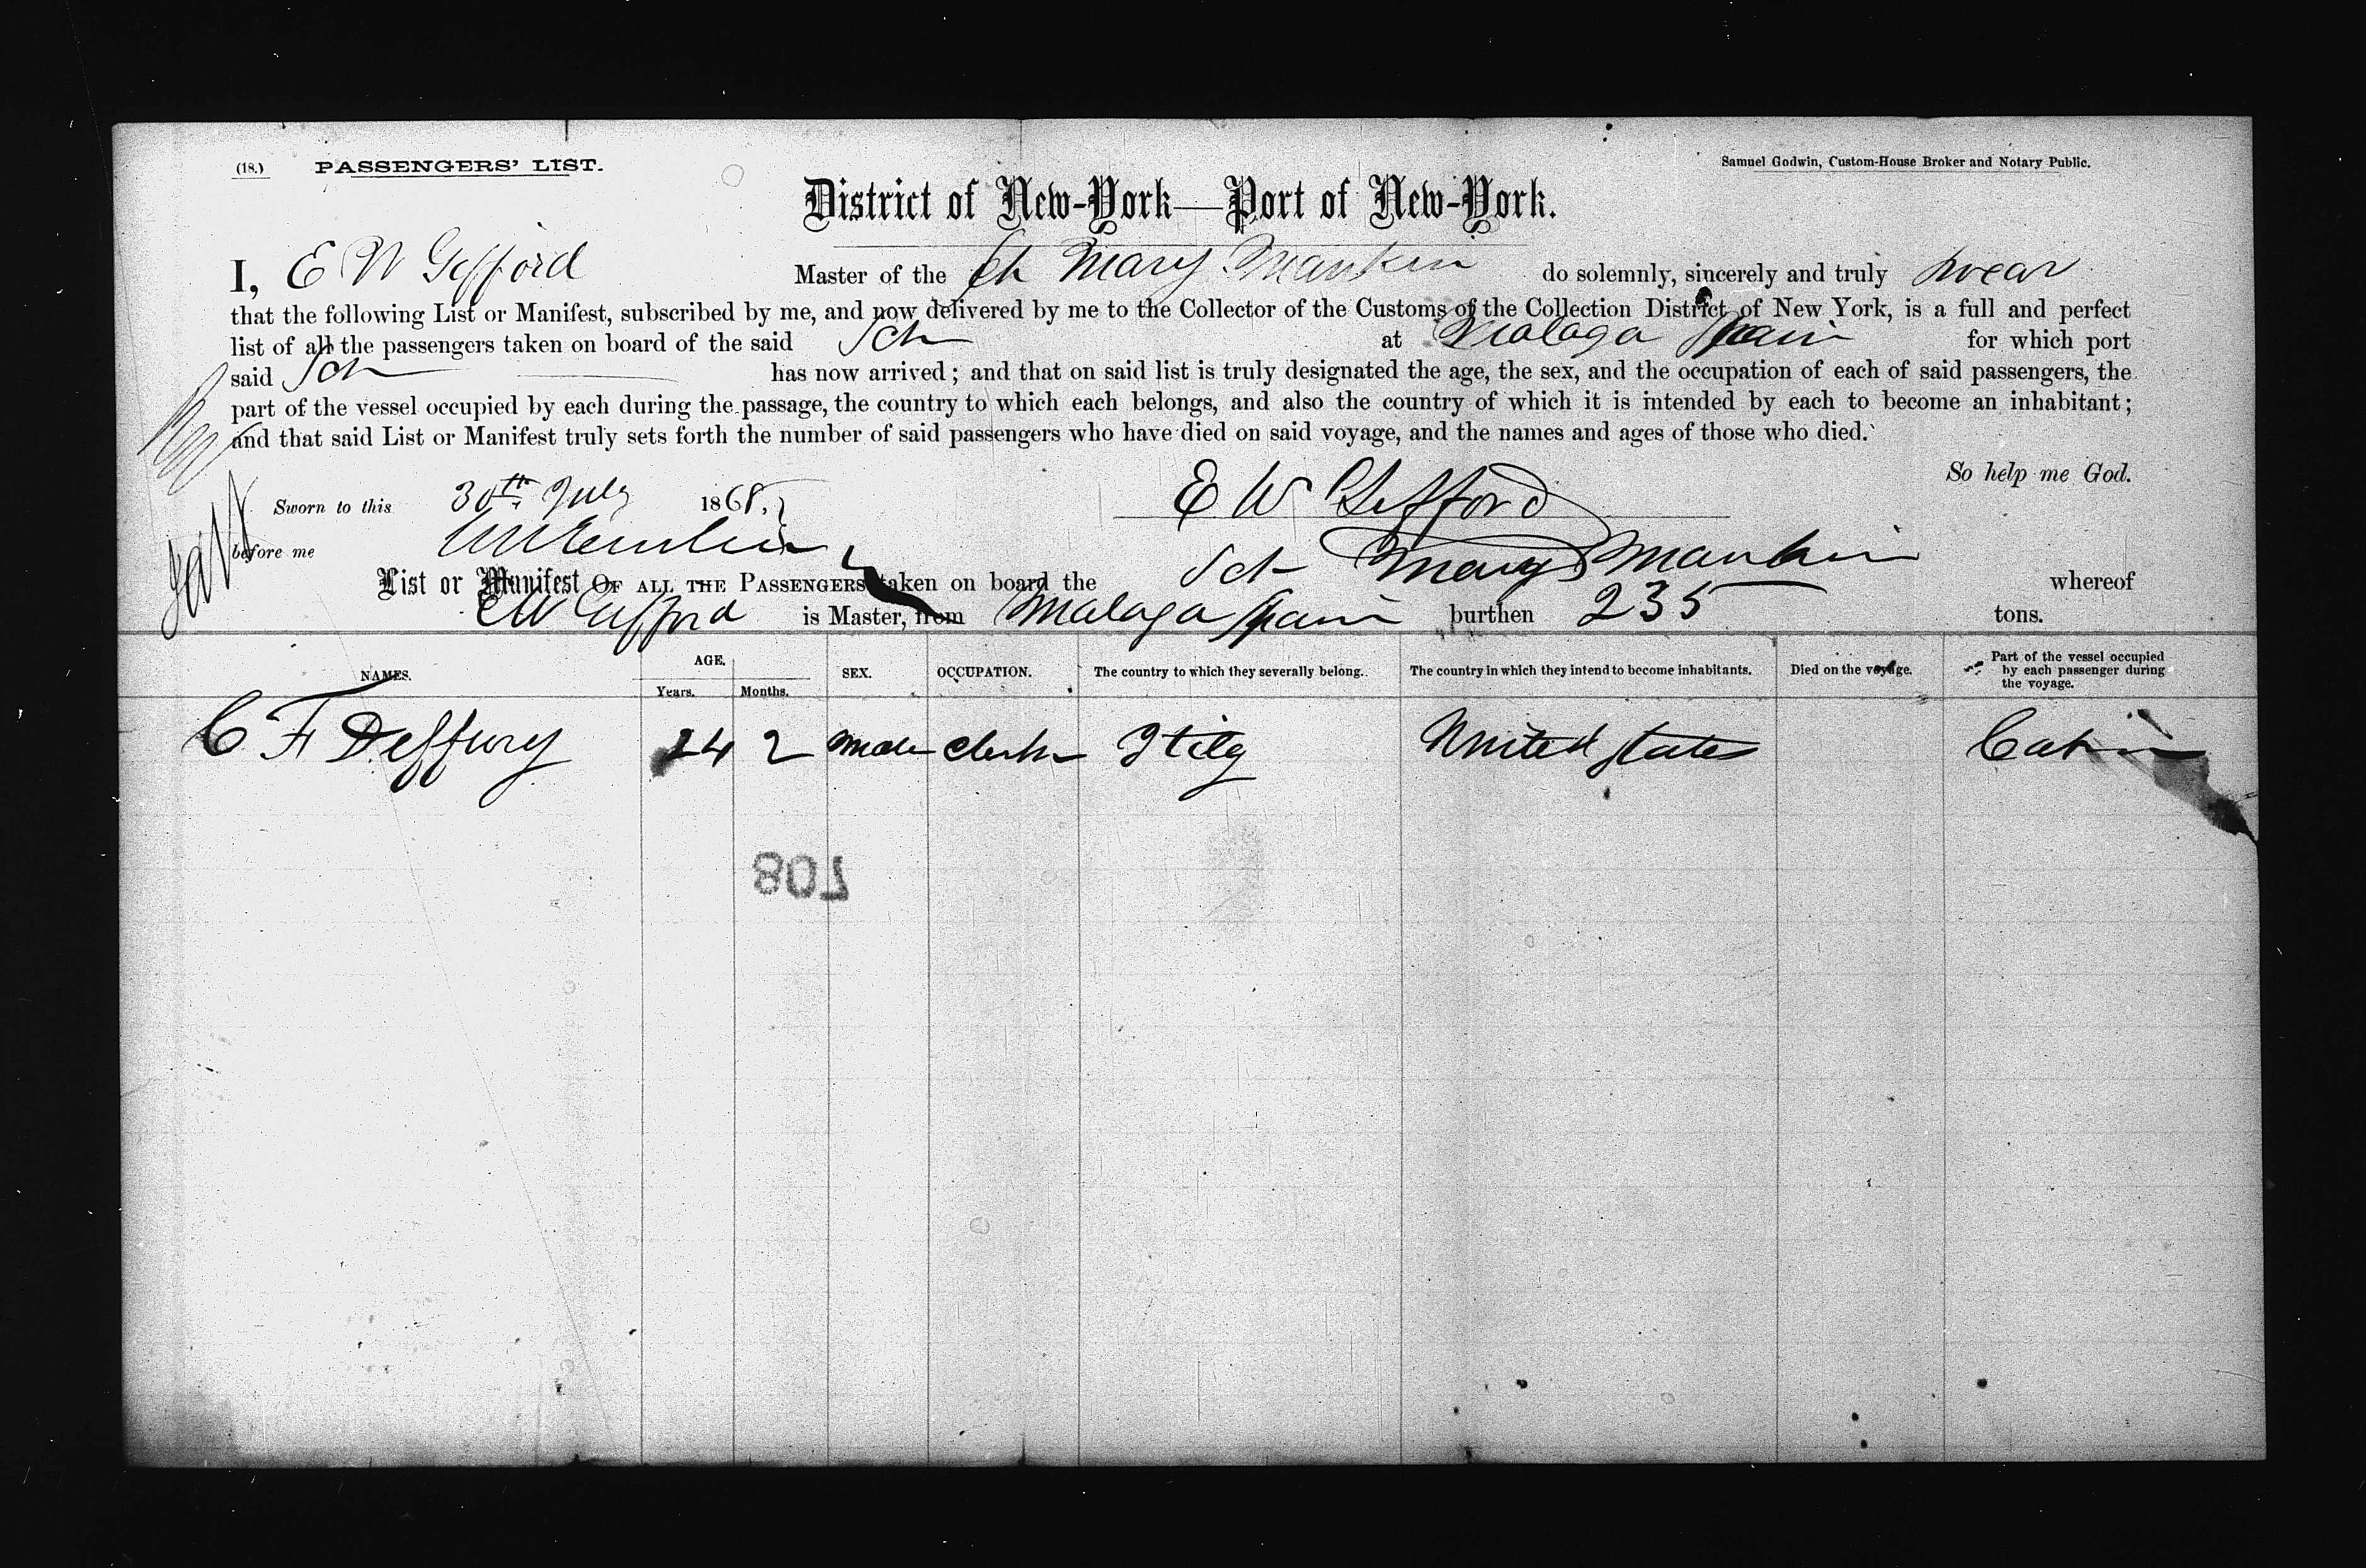 (18.) PASSENGERS' LIST.
Samuel Godwin, Custom-House Broker and Notary Public.
District of New-York—Port of New-York.
I, E W Gifford Master of the Sch Mary Mankin do solemnly, sincerely and truly swear
that the following List or Manifest, subscribed by me, and now delivered by me to the Collector of the Customs of the Collection District of New York, is a full and perfect
list of all the passengers taken on board of the said Sch at Malaga Spain for which port
said Sch has now arrived; and that on said list is truly designated the age, the sex, and the occupation of each of said passengers, the
part of the vessel occupied by each during the passage, the country to which each belongs, and also the country of which it is intended by each to become an inhabitant;
and that said List or Manifest truly sets forth the number of said passengers who have died on said voyage, and the names and ages of those who died.
So help me God.
Sworn to this 30th July 1868, E W Gifford
before me
List or Manifest OF ALL THE PASSENGERS taken on board the Sch Mary Mankin whereof
E W Gifford is Master, from Malaga Spain burthen 235 tons.
NAMES. AGE. Years. Months. SEX. OCCUPATION. The country to which they severally belong. The country in which they intend to become inhabitants. Died on the voyage. Part of the vessel occupied by each passenger during the voyage.
C F 24 2 male clerk Itily United States Cabin
708